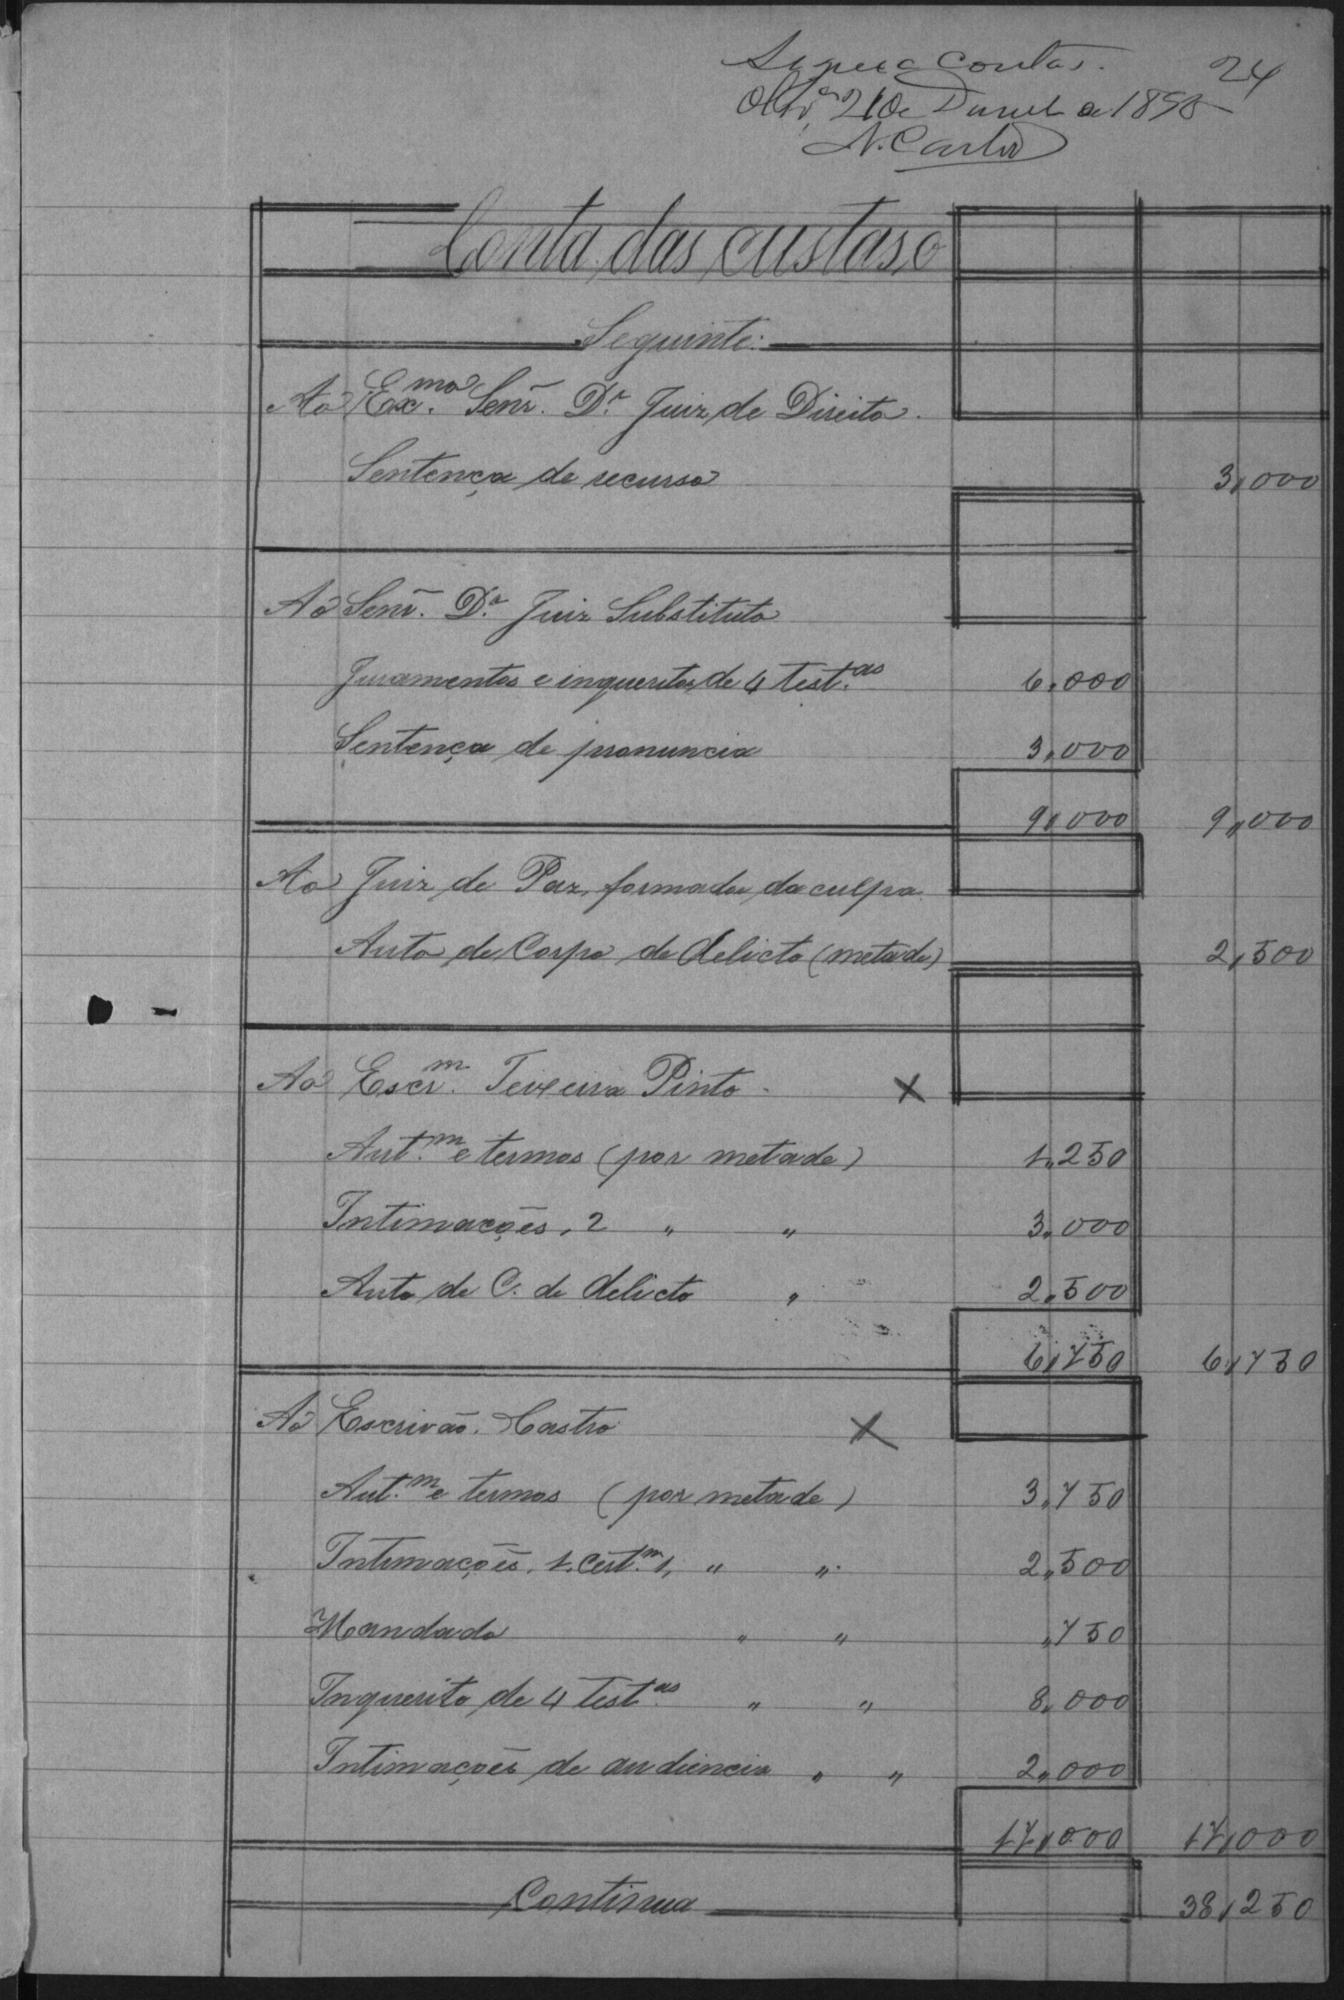 24
contas.
21 de de 1895
N. Castro
Conta das custas, o
Seguinte:
Ao Ex.mo Senr. Dr. Juiz de Direito.
Sentença de recurso 3,000
Ao Senr. Dr. Juiz Substituto
Juramentos e inqueritos de 4 test.as 6,000
Sentença de pronuncia 3,000
9,000 9,000
Ao Juiz de Paz, formador da culpa
Auto de Corpo de delicto (metade) 2,500
Ao Escr.m Teixeira Pinto. X
Aut.m e termos (por metade) 1,250
Intimações, 2 " " 3,000
Auto de C. de delicto " 2,500
6,750 6,750
Ao Escrivão. Castro X
Aut.m e termos (por metade) 3,750
Intimações, 1, cert.m 1, " " 2,500
Mandado " " ,750
Inquerito de 4 test.as " " 8,000
Intimações de audiencia " " 2,000
17,000 17,000
Continua 38,250